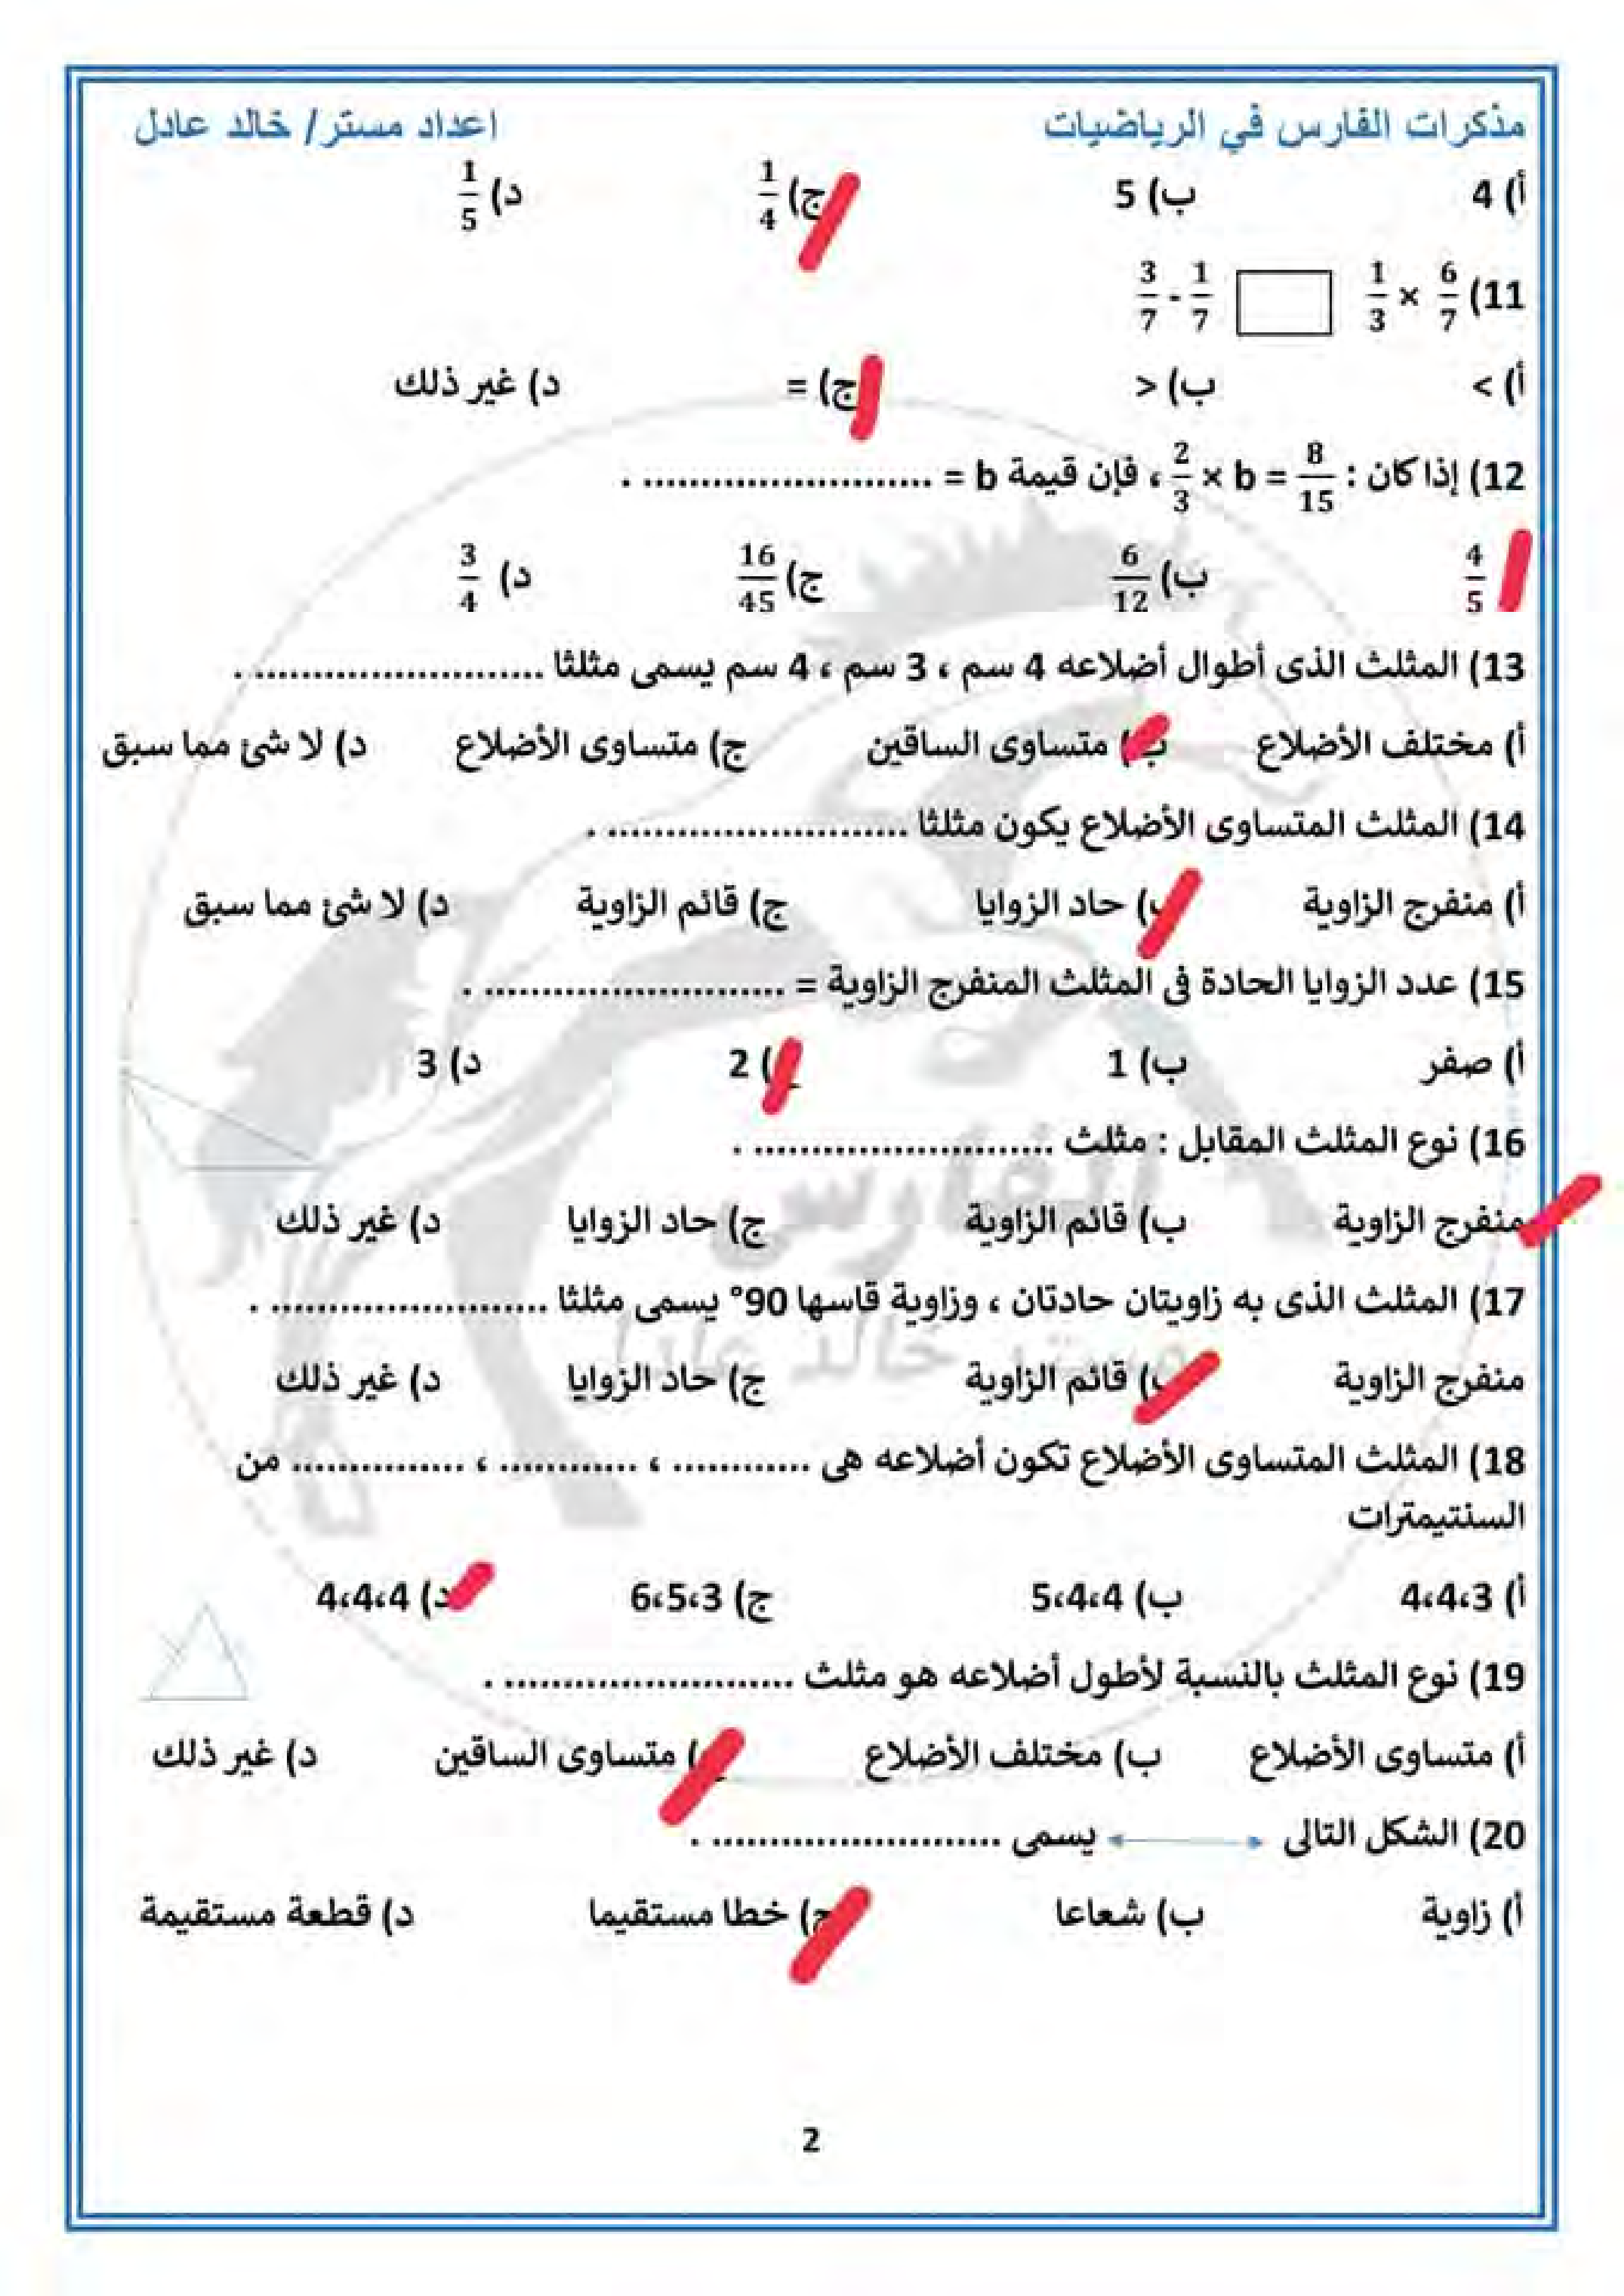 مذكرات الفارس في الرياضيات اعداد مستر/ خالد عادل
أ) 4 ب) 5 ج) 1/4 د) 1/5
11) 6/7 × 1/3 3/7 - 1/7
أ) > ب) < ج) = د) غير ذلك
12) إذا كان : 2/3 × b = 8/15 ، فإن قيمة b = .......................... .
4/5 ب) 6/12 ج) 16/45 د) 3/4
13) المثلث الذى أطوال أضلاعه 4 سم ، 3 سم ، 4 سم يسمى مثلثا .......................... .
أ) مختلف الأضلاع ب) متساوى الساقين ج) متساوى الأضلاع د) لا شئ مما سبق
14) المثلث المتساوى الأضلاع يكون مثلثا .......................... .
أ) منفرج الزاوية ب) حاد الزوايا ج) قائم الزاوية د) لا شئ مما سبق
15) عدد الزوايا الحادة فى المثلث المنفرج الزاوية = .......................... .
أ) صفر ب) 1 ) 2 د) 3
16) نوع المثلث المقابل : مثلث .......................... .
منفرج الزاوية ب) قائم الزاوية ج) حاد الزوايا د) غير ذلك
17) المثلث الذى به زاويتان حادتان ، وزاوية قاسها 90° يسمى مثلثا .......................... .
منفرج الزاوية ب) قائم الزاوية ج) حاد الزوايا د) غير ذلك
18) المثلث المتساوى الأضلاع تكون أضلاعه هى ............ ، ............ ، ............... من
السنتيمترات
أ) 4،4،3 ب) 5،4،4 ج) 6،5،3 د) 4،4،4
19) نوع المثلث بالنسبة لأطول أضلاعه هو مثلث .......................... .
أ) متساوى الأضلاع ب) مختلف الأضلاع ) متساوى الساقين د) غير ذلك
20) الشكل التالى يسمى .......................... .
أ) زاوية ب) شعاعا ج) خطا مستقيما د) قطعة مستقيمة
الفارس
مستر خالد عادل
2